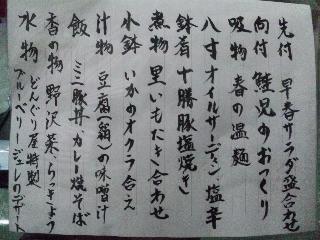 先付 早春サラダ盛合わせ
向付 鮭児のおつくり
吸物 春の温麺
八寸 オイルサーディン 塩辛
鉢肴 十勝豚塩焼き
煮物 里いもたき合わせ
小鉢 いかのオクラ合え
汁物 豆腐(絹)の味噌汁
飯 ミニ豚丼 カレー焼そば
香の物 野沢菜 らっきょう
水物 どんぐり屋特製
ブルーベリージュレのデザート